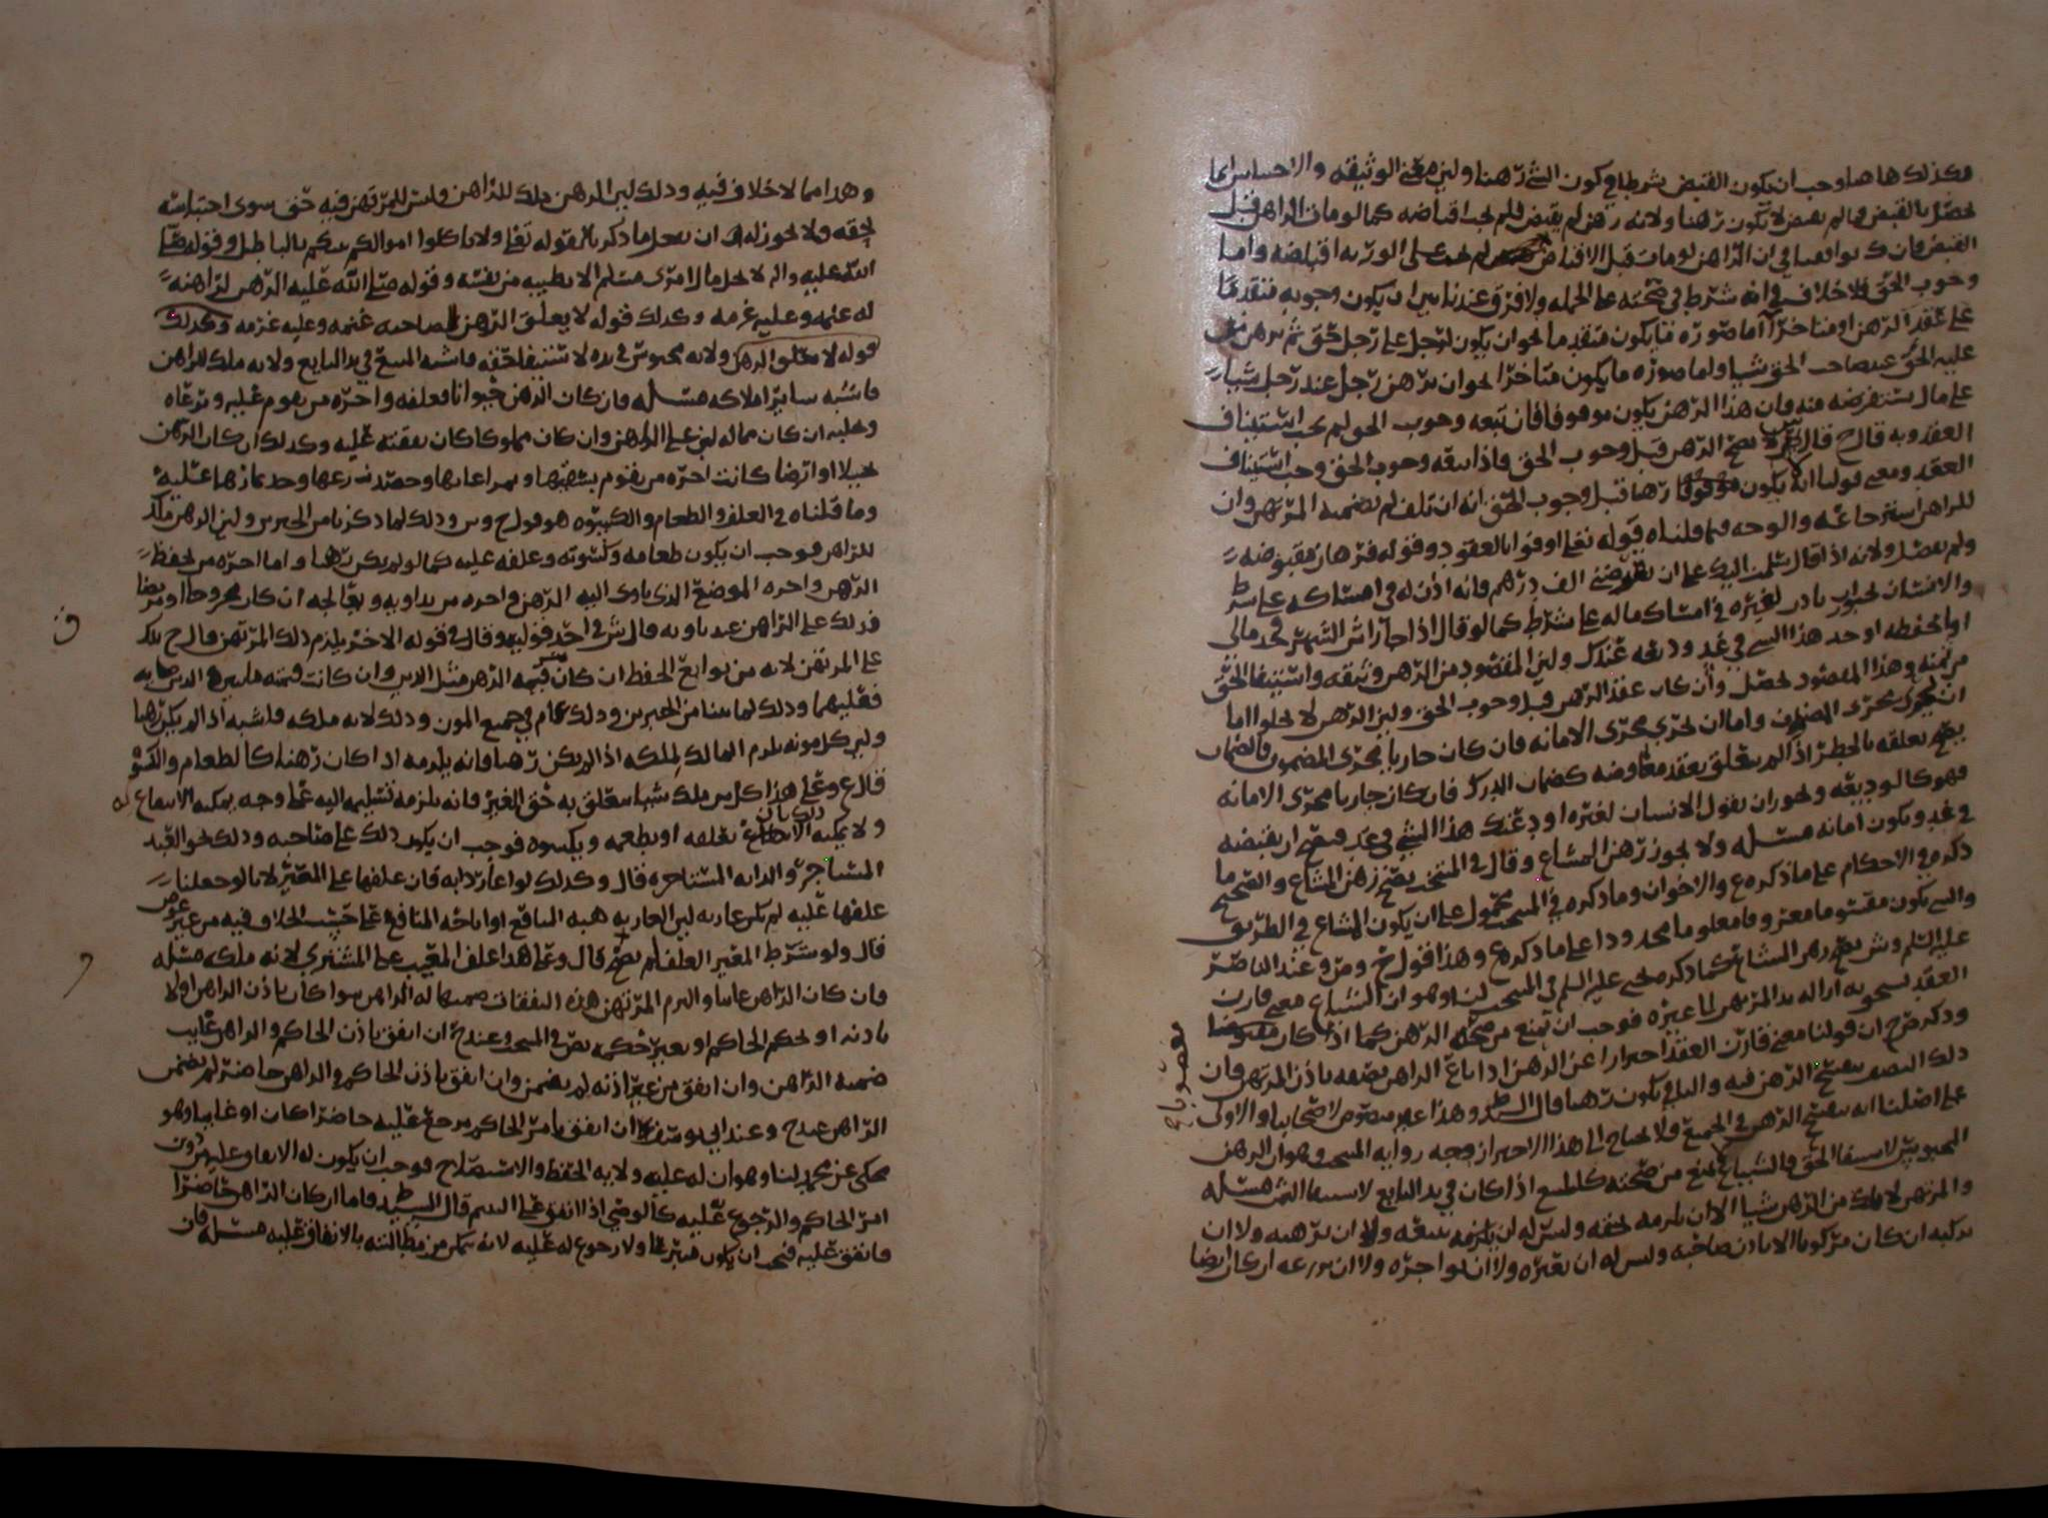 وكذلك هاهنا وجب ان يكون القبض شرطا في كون الشي رهنا ولين معنى الوثيقه والاحتباس انما
تحصل بالقبض فما لم يقبض لا يكون رهنا ولانه رهن لم يقبض فلم يجب اقباضه كما لو مات الراهن قبل
القبض فان في ان الراهن لو مات قبل الاقباض لم يجب على الورثه اقباضه واما
وجوب الحق فلا خلاف في انه شرط في صحته على الجمله ولا فرق عندنا بين ان يكون وجوبه متقدما
على عقد الرهن او متاخرا اما صوره ما يكون متقدما نحو ان يكون لرجل على رجل حق ثم يرهن من
عليه الحق عند صاحب الحق شيا واما صوره ما يكون متاخرا نحو ان يرهن رجل عند رجل شيا
على مال يستقرضه منه فان هذا الرهن يكون موقوفا فان تبعه وجوب الحق لم يجب استيناف
العقد وبه قال ح قال ش لا يصح الرهن قبل وجوب الحق فاذا سبقه وجوب الحق وجب استيناف
العقد ومعنى قولنا انه يكون موقوفا رهنا قبل وجوب الحق انه ان تلف لم يضمنه المرتهن وان
للراهن استرجاعه والوجه فيما قلناه قوله تعلى اوفوا بالعقود وقوله فرهان مقبوضه
ولم يفصل ولانه اذا قال سلمت اليك على ان تقرضني الف درهم فانه اذن له في امساكه على شرط
والانسان يجوز ان ياذن لغيره في امساك ماله على شرط كما لو قال اذا جا راس الشهر فخذ مالي
او احفظه او خذ هذا الشي في غد وديعه عندك ولين المقصود من الرهن وثيقه واستيفا الحق
من ثمنه وهذا المقصود يحصل وان كان عقد الرهن قبل وجوب الحق ولين الرهن لا يخلوا اما
ان يجري مجرى المضمون واما ان يجري مجرى الامانه فان كان جاريا مجرى المضمون فالضمان
يصح تعلقه بالخطر اذا لم يتعلق بعقد معاوضه كضمان الدرك فان كان جاريا مجرى الامانه
فهو كالوديعه ويجوز ان يقول الانسان لغيره اودعتك هذا الشي في غد فيصح ان يقبضه
في غد ويكون امانه مسله ولا يجوز رهن المشاع وقال في المنتخب يصح رهن المشاع والصحيح ما
ذكره في الاحكام على ما ذكره ع والاخوان وما ذكره في المنتخب محمول على ان يكون المشاع في الطريق
والشي يكون مقسوما معروفا معلوما محدودا على ما ذكره ع وهذا قول ح و م و عند الناصر
عليه السلم وش يصح رهن المشاع كما ذكر يحيى عليه السلم في المنتخب لنا وهو ان الشياع معنى قارن
العقد يستحق به ازاله يد المرتهن الى غيره فوجب ان يمنع من صحه الرهن كما اذا كان
مغصوبا صح
وذكر ح ان قولنا معنى قارن العقد احترازا عن الرهن اذا باع الراهن نصفه باذن المرتهن فان
ذلك النصف يصح الرهن فيه والباقي يكون رهنا قال السيد وهذا غير منصوص لاصحابنا والاولى
على اصلنا انه يصح الرهن في الجميع فلا يحتاج الى هذا الاحتراز وجه روايه المنتخب وهو ان الرهن
المحبوس لاستيفا الحق والشياع لا يمنع من صحته كالمبيع اذا كان في يد البايع لاستيفا الثمن مسله
والمرتهن لا يملك من الرهن شيا الا ان يلزمه بحقه وليس له ان يبيعه ولا ان يرهنه ولا ان
يركبه ان كان مركوبا الا باذن صاحبه وليس له ان يعيره ولا ان يواجره ولا ان يزرعه ان كان ارضا
وهذا مما لا خلاف فيه وذلك لين الرهن ملك للراهن وليس للمرتهن فيه حق سوى احتباسه
بحقه ولا يجوز له ان يفعل ما ذكرنا لقوله تعلى ولا تاكلوا اموالكم بينكم بالباطل وقوله صلى
الله عليه واله لا يحل مال امرئ مسلم الا بطيبه من نفسه وقوله صلى الله عليه الرهن لراهنه
له غنمه وعليه غرمه وكذلك قوله لا يغلق الرهن لصاحبه غنمه وعليه غرمه وكذلك
قوله لا يغلق الرهن ولانه محبوس في يده لاستيفا حقه فاشبه المبيع في يد البايع ولانه ملك للراهن
فاشبه ساير املاكه مسله فان كان الرهن حيوانا فعلفه واجره من يقوم عليه ويرعاه
وحلبه ان كان مما له لبن على الراهن وان كان مملوكا كان نفقته عليه وكذلك ان كان الرهن
نخيلا او ارضا كانت اجره من يقوم بسقيها ومراعاتها وحصد زرعها وجد ثمارها عليه
وما قلناه في العلف والطعام والكسوه هو قول ح وش وذلك لما ذكرنا من الخبرين ولين الرهن ملك
للراهن فوجب ان يكون طعامه وكسوته وعلفه عليه كما لو لم يكن رهنا واما اجره من يحفظ
الرهن واجره الموضع الذي ياوى اليه الرهن واجره من يداويه ويعالجه ان كان مجروحا او مريضا
فذلك على الراهن عندنا وبه قال ش في احد قوليه وقال في قوله الاخر يلزم ذلك المرتهن قال ح ذلك
على المرتهن لانه من توابع الحفظ ان كان قيمه الرهن مثل الدين وان كانت قيمته مايين والدين مايه
فعليهما وذلك لما بينا من الخبرين وذلك عام في جميع المون وذلك لانه ملكه فاشبه اذا لم يكن رهنا
ولين كل مونه تلزم المالك لملكه اذا لم يكن رهنا فانه يلزمه اذا كان رهنا كالطعام والكسوه
قال ع وعلى هذا كل من ملك شيا يتعلق به حق الغير فانه يلزمه تسليمه اليه على وجه يمكنه الانتفاع له
ولا يمكنه ذلك بان يعلفه او يطعمه ويكسوه فوجب ان يكون ذلك على صاحبه وذلك نحو العبد
المستاجر والدابه المستاجره قال وكذلك لو اعار دابه فان علفها على المعير لانا لو جعلنا
علفها عليه لم يكن عاريه لين العاريه هبه المنافع او اباحه المنافع على حسب الخلاف فيه من غير عوض
قال ولو شرط المعير العلف لم يصح قال وعلى هذا علف المعيب على المشتري لانه ملكه مسله
فان كان الراهن غايبا والتزم المرتهن هذه النفقات ضمنها له الراهن سوا كان باذن الراهن او لا
باذنه او بحكم الحاكم او بغير حكمه نص في المنتخب وعند ح ان انفق باذن الحاكم والراهن غايب
ضمنه الراهن وان انفق من غير اذنه لم يضمن وان انفق باذن الحاكم والراهن حاضر لم يضمن
الراهن عند ح وعند ابي يوسف ان انفق بامر الحاكم يرجع عليه حاضرا كان او غايبا وهو
محكي عن محمد لنا وهو ان له عليه ولايه الحفظ والاستصلاح فوجب ان يكون له الانفاق عليه دون
امر الحاكم والرجوع عليه كالوصي اذا انفق على اليتيم قال السيد فاما ان كان الراهن حاضرا
فانفق عليه فيجب ان يكون متبرعا ولا رجوع له عليه لانه يتمكن من مطالبته بالانفاق عليه مسله فان